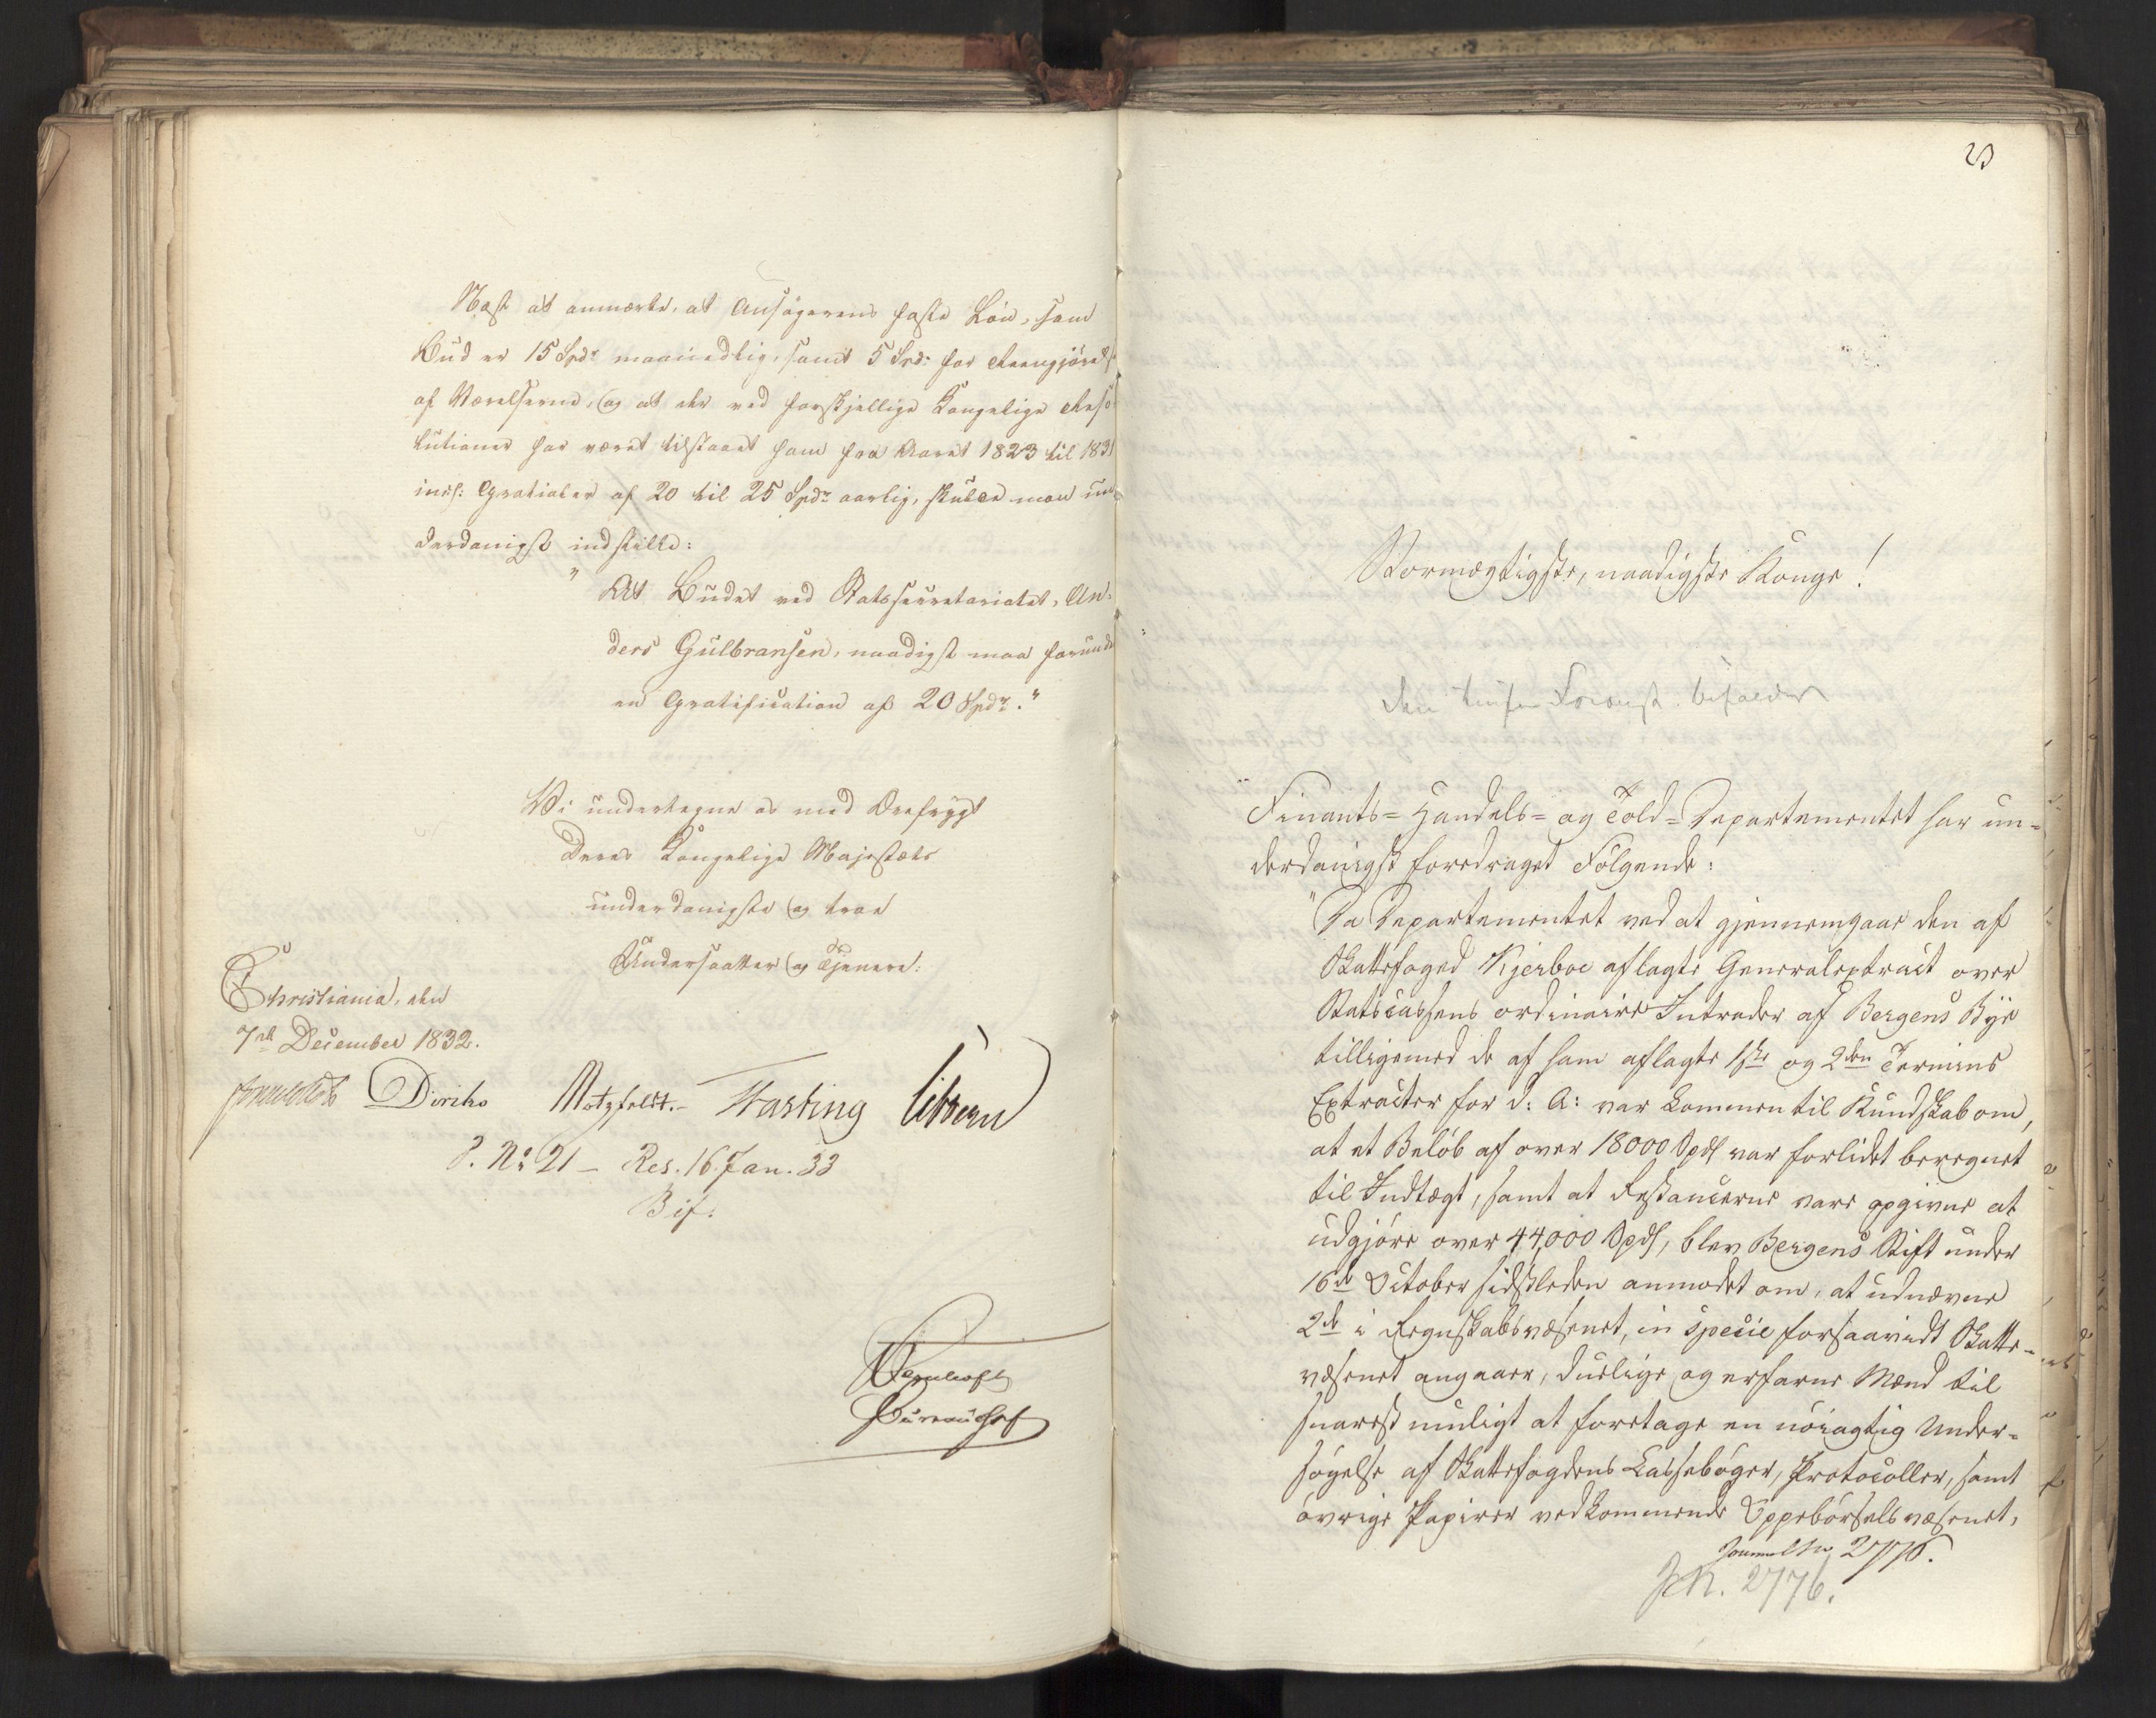 Næst at anmærke, at Ansøgerens faste Løn, som
Bud er 15 Spdr maanedlig, samt 5 Spd: for Reengjørelse
af Værelserne, og at der ved forskjellige Kongelige Reso
lutioner har været tilstaaet ham fra Aaret 1823 til 1831
incl: Gratialer af 20 til 25 Spdr aarlig, skulde man un
derdanigst indstille:
"At Budet ved Statssecretariatet, An-
ders Gulbransen, naadigst maa forunde
en Gratification af 20 Spdr."
Vi undertegne os med Ærefrygt
Deres Kongelige Majestæts
underdanigste og troe
Undersaatter og Tjenere:
Christiania, den
7de December 1832.
Diriks Motzfeldt.- Fasting
P. No 21 - Res. 16 Jan. 33
Bif.
Bureauchef
23
Stormægtigste, naadigste Konge!
Finants- Handels- og Told-Departementet har un-
derdanigst foredraget Følgende:
"Da Departementet ved at gjennemgaae den af
Skattefoged Kjerboe aflagte Generalextract over
Statscassens ordinaire Intrader af Bergens Bye
tilligemed de af ham aflagte 1ste og 2den Termins
Extracter for d: A: var kommen til Kundskab om,
at et Beløb af over 18000 Spd var forlidet beregnet
til Indtægt, samt at Restancerne vare opgivne at
udgjøre over 44,000 Spd, blev Bergens Stift under
16de October sidstleden anmodet om, at udnævne
2de i Regnskabsvæsenet, in specie forsaavidt Skatte-
væsenet angaaer, duelige og erfarne Mænd til
snarest muligt at foretage en nøiagtig Under-
søgelse af Skattefogdens Cassebøger, Protocoller, samt
øvrige Papirer vedkommende Oppebørselsvæsenet,
Journal No 2776.
JN. 2776.